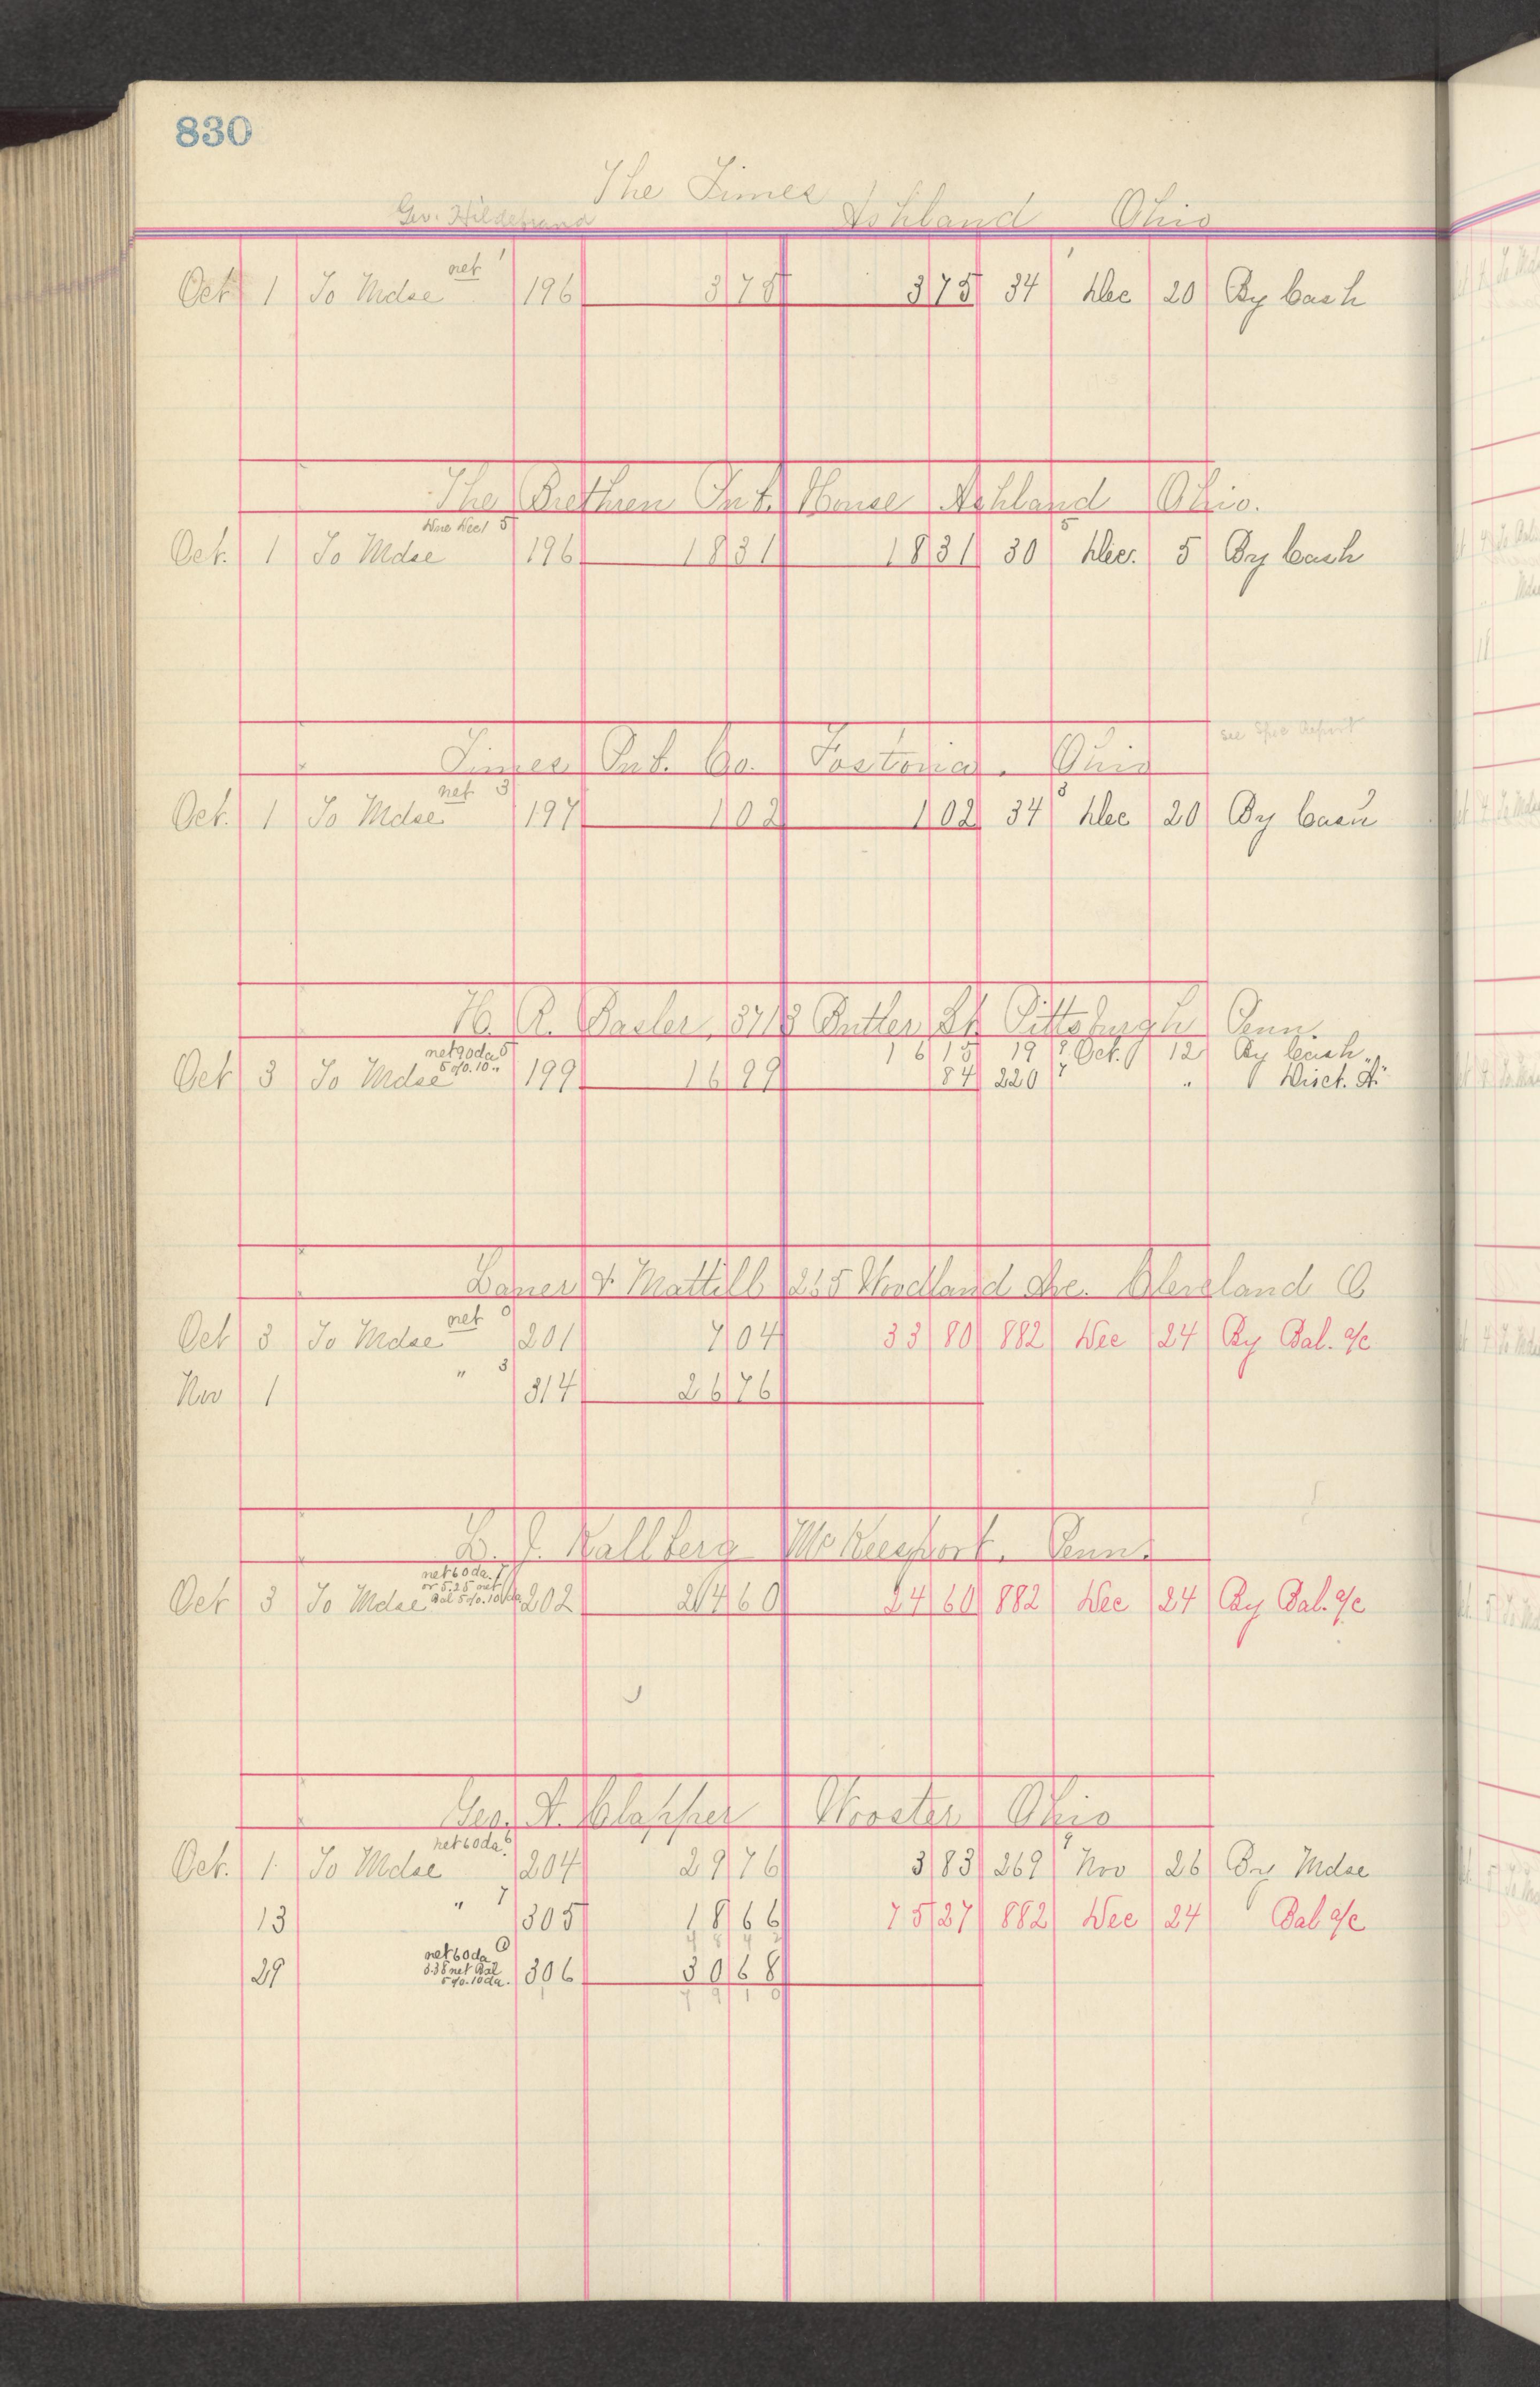 830
The Times
Geo. Hildebrand Ashland Ohio
Oct 1 To Mdse net 196 3 75 3 75 34 Dec 20 By Cash
The Brethren Pub. House Ashland Ohio.
Oct. 1 To Mdse 196 18 31 18 31 30 Dec. 5 By Cash
see Spec Report
Times Pub. Co. Fostoria. Ohio
Oct. 1 To Mdse net 197 1 02 1 02 34 Dec 20 By Cash
H. R. Basler, 3713 Butler St Pittsburgh Penn.
net 90 da 16 15 19 Oct. 12 By Cash
Oct 3 To Mdse 5%. 10 " 199 16 99 84 220 " " Disct. A/c
Baner & Mattill 255 Woodland Ave. Cleveland O
Oct 3 To Mdse net 201 7 04 33 80 882 Dec 24 By Bal. a/c
Nov 1 " 314 26 76
L. J. Kallberg McKeesport. Penn.
net 60 da.
or 5.25 net
Oct 3 To Mdse Bal 5%. 10 da 202 24 60 24 60 882 Dec 24 By Bal. a/c
Geo. A. Clapper Wooster Ohio
net 60 da.
Oct. 1 To Mdse 204 29 76 3 83 269 Nov 26 By Mdse
13 " 305 18 66 75 27 882 Dec 24 Bal a/c
48 42
net 60 da
29 3.38 net Bal 306 30 68
5%. 10 da.
79 10